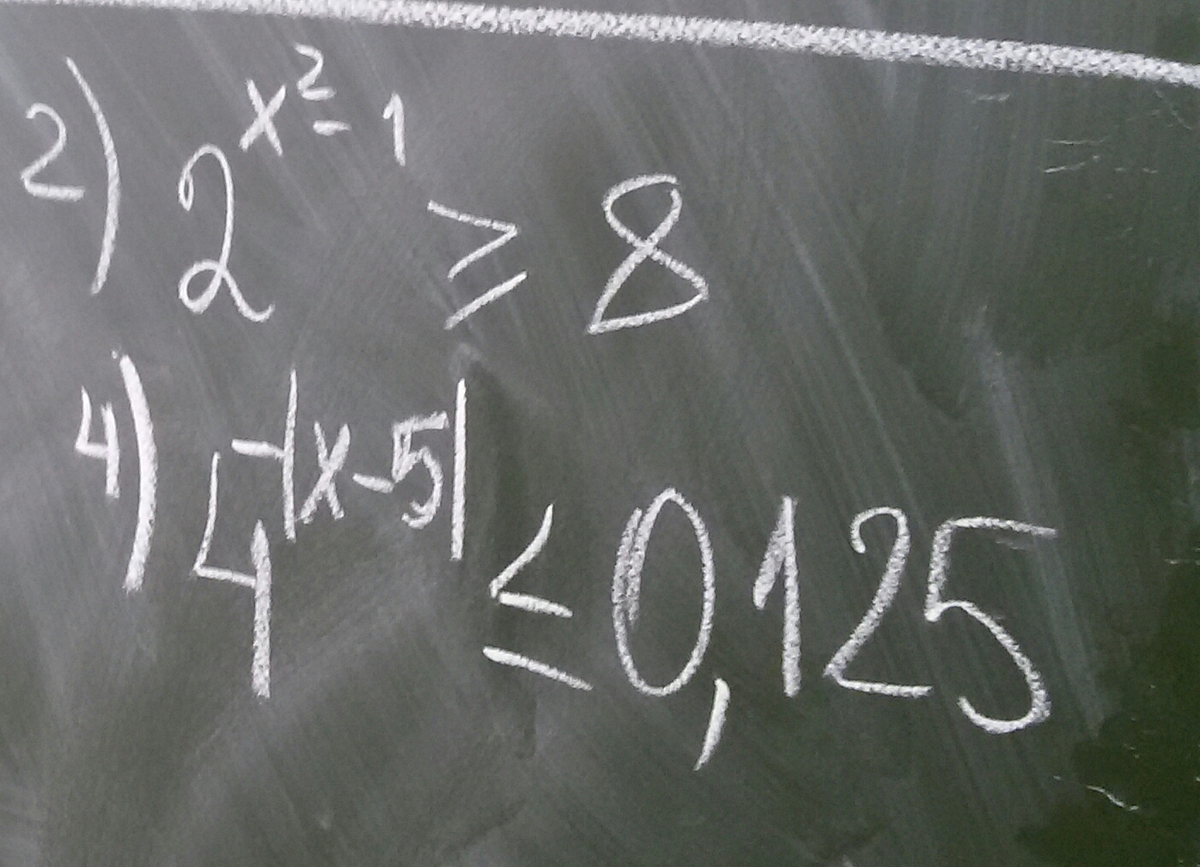 2) 2^{x²-1} ≥ 8
4) 4^{-|x-5|} ≤ 0,125